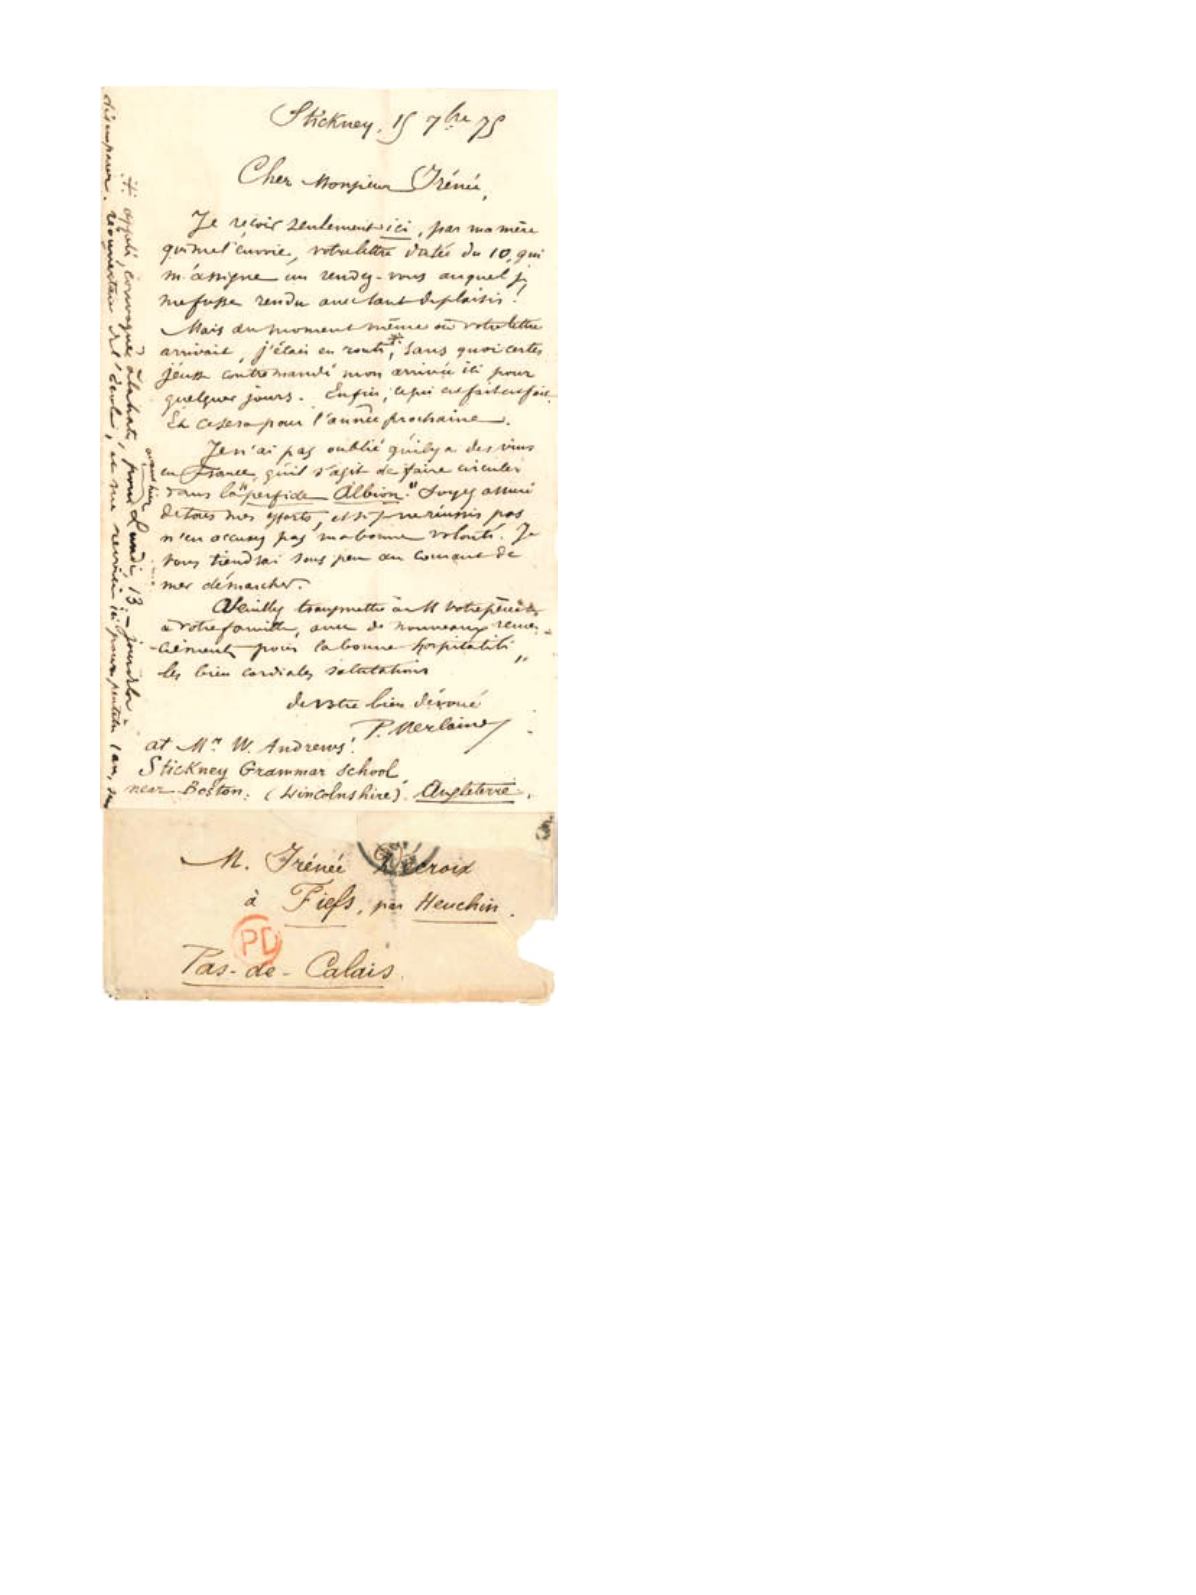 Stickney, 15 7bre 75
Cher Monsieur Irénée,
Je reçois seulement ici, par ma mère
qui me l'envoie, votre lettre datée du 10, qui
m'assigne un rendez-vous auquel je
me fusse rendu avec tant de plaisir !
Mais au moment même où votre lettre
arrivait, j'étais en route #, sans quoi certes
j'eusse contremandé mon arrivée ici pour
quelques jours. Enfin, ce qui est fait est fait.
Et ce sera pour l'année prochaine.
Je n'ai pas oublié qu'il y a des vins
en France, qu'il s'agit de faire circuler
dans la "perfide Albion." Soyez assuré
de tous mes efforts, et si je ne réussis pas
n'en accusez pas ma bonne volonté. Je
vous tiendrai sous peu au courant de
mes démarches.
Veuillez transmettre à M votre père &
à votre famille, avec de nouveaux remer-
-ciements pour la bonne hospitalité,
les bien cordiales salutations
de votre bien dévoué
P. Verlaine
at Mr W. Andrews'.
Stickney Grammar School,
near Boston. (Lincolnshire) Angleterre.
#. appelé, convoqué à la hâte, pour Lundi, 13, - jour de la
avant hier
réouverture de l'école, et me revoici ici pour peut-être 1 an, sans
désemparer.
M. Irénée Décroix
à Fiefs, par Heuchin.
PD
Pas-de-Calais.